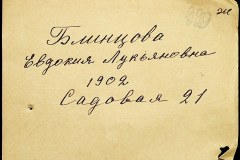 Блинцова
Евдокия Лукьяновна
1902
Садовая 21